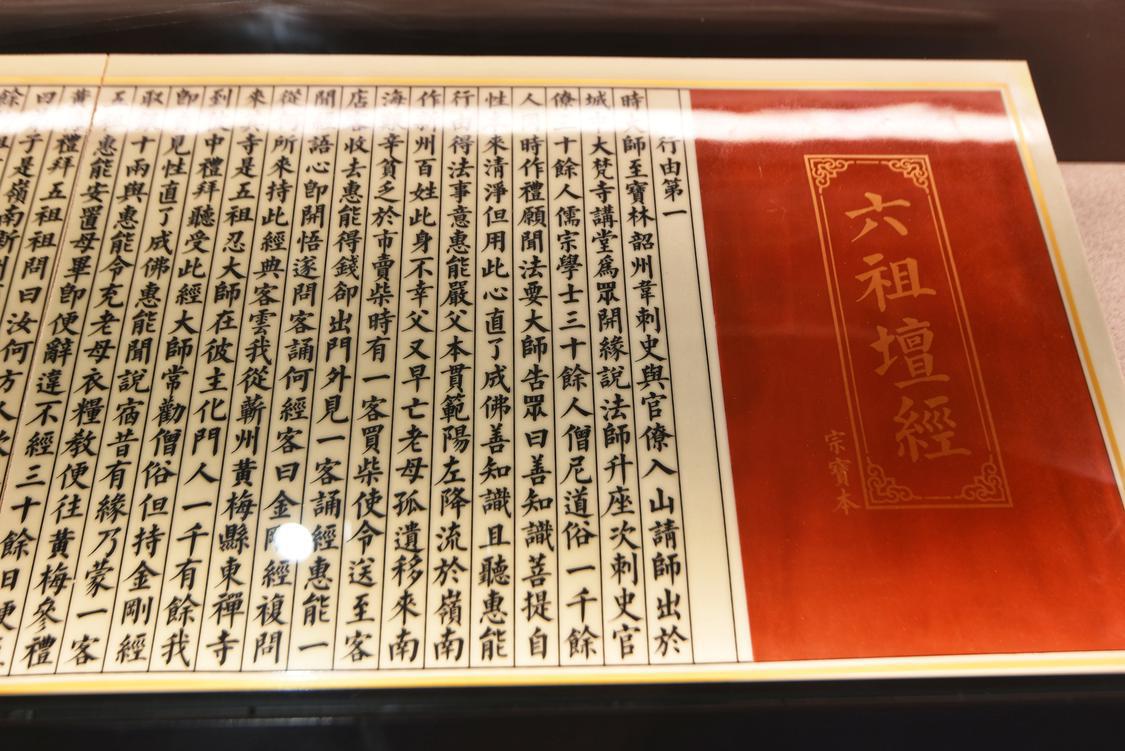 六祖壇經
宗寶本
行由第一
時大師至寶林韶州韋刺史與官僚入山請師出於
城大梵寺講堂爲眾開緣說法師升座次刺史官
僚十餘人儒宗學士三十餘人僧尼道俗一千餘
人時作禮願聞法要大師告眾曰善知識菩提自
性來清淨但用此心直了成佛善知識且聽惠能
行由得法事意惠能嚴父本貫範陽左降流於嶺南
作州百姓此身不幸父又早亡老母孤遺移來南
海辛貧乏於市賣柴時有一客買柴使令送至客
店收去惠能得錢卻出門外見一客誦經惠能一
聞語心即開悟遂問客誦何經客曰金剛經複問
從所來持此經典客雲我從蘄州黃梅縣東禪寺
來寺是五祖忍大師在彼主化門人一千有餘我
到中禮拜聽受此經大師常勸僧俗但持金剛經
即見性直了成佛惠能聞說宿昔有緣乃蒙一客
取十兩與惠能令充老母衣糧教便往黃梅參禮
五惠能安置母畢即便辭違不經三十餘日便至
黃禮拜五祖祖問曰汝何方人欲
曰子是嶺南新州
餘